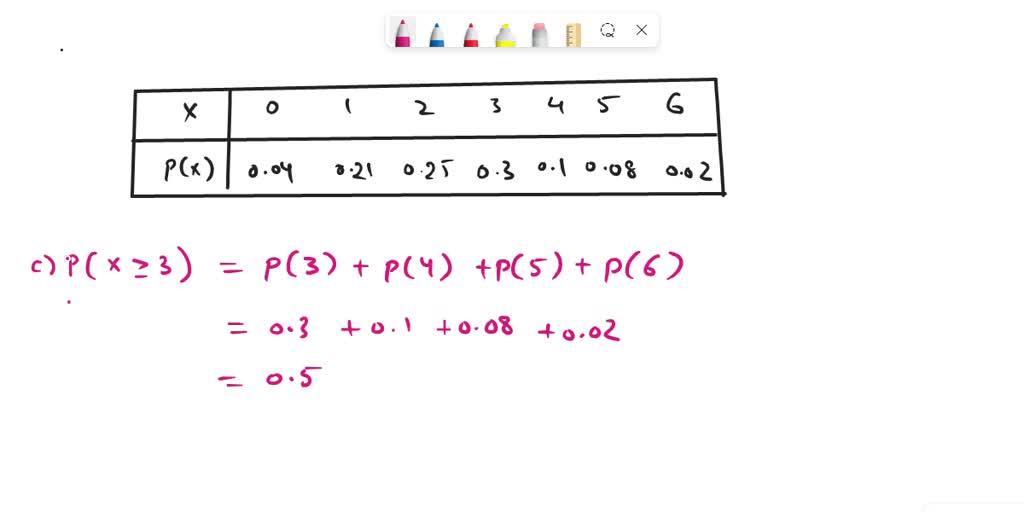 x 0 1 2 3 4 5 6
P(x) 0.04 0.21 0.25 0.3 0.1 0.08 0.02
c) P(x ≥ 3) = P(3) + P(4) + P(5) + P(6)
= 0.3 + 0.1 + 0.08 + 0.02
= 0.5